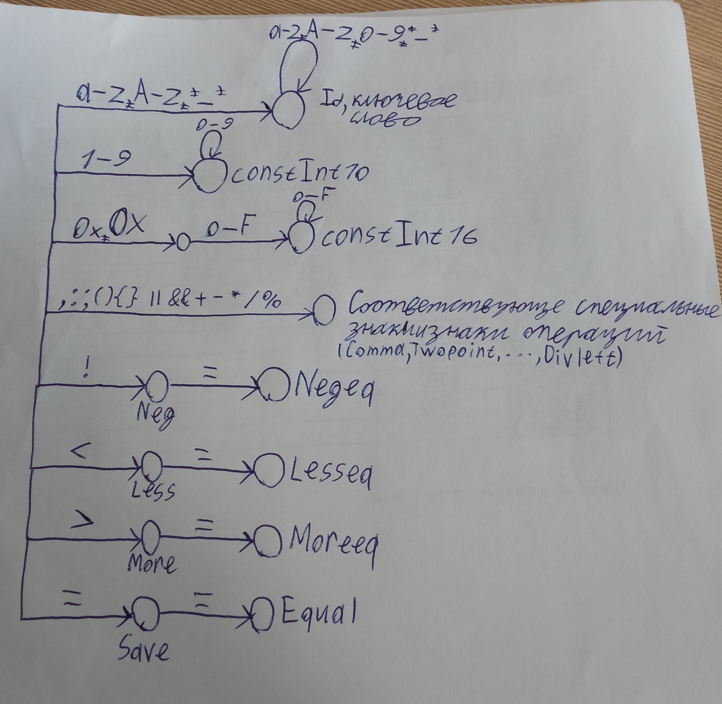 a-z,A-Z,0-9,"_"
a-z,A-Z,"_"
Id, ключевое
слово
0-9
1-9
constInt10
0-F
0x,0X
0-F
constInt16
,:;(){} || && + - * / %
Соответствующе специальные
знакиизнаки операций
(Comma,Twopoint,...,Divleft)
!
=
Negeq
Neg
<
=
Lesseq
Less
>
=
Moreeq
More
=
=
Equal
Save